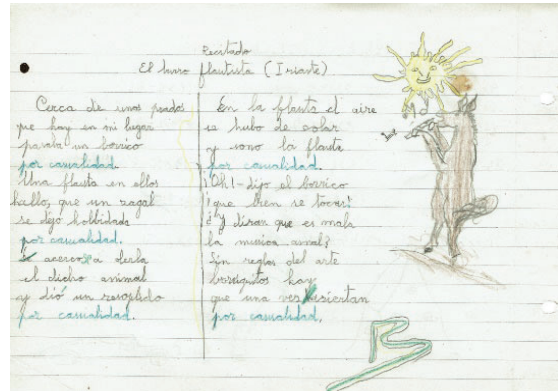 Recitado
El burro flautista (Iriarte)
Cerca de unos prados
que hay en mi lugar
pasaba un borrico
por casualidad.
Una flauta en ellos
hallo, que un zagal
se dejo holbidada
por casualidad.
Se acerco a olerla
el dicho animal
y dió un resoplido
por casualidad.
En la flauta el aire
se hubo de colar
y sono la flauta
por casualidad.
¡Oh!- dijo el borrico
¡que bien se tocar!
¿Y diran que es mala
la musica asnal?
Sin reglas del arte
borriquitos hay
que una vez
por casualidad.
B